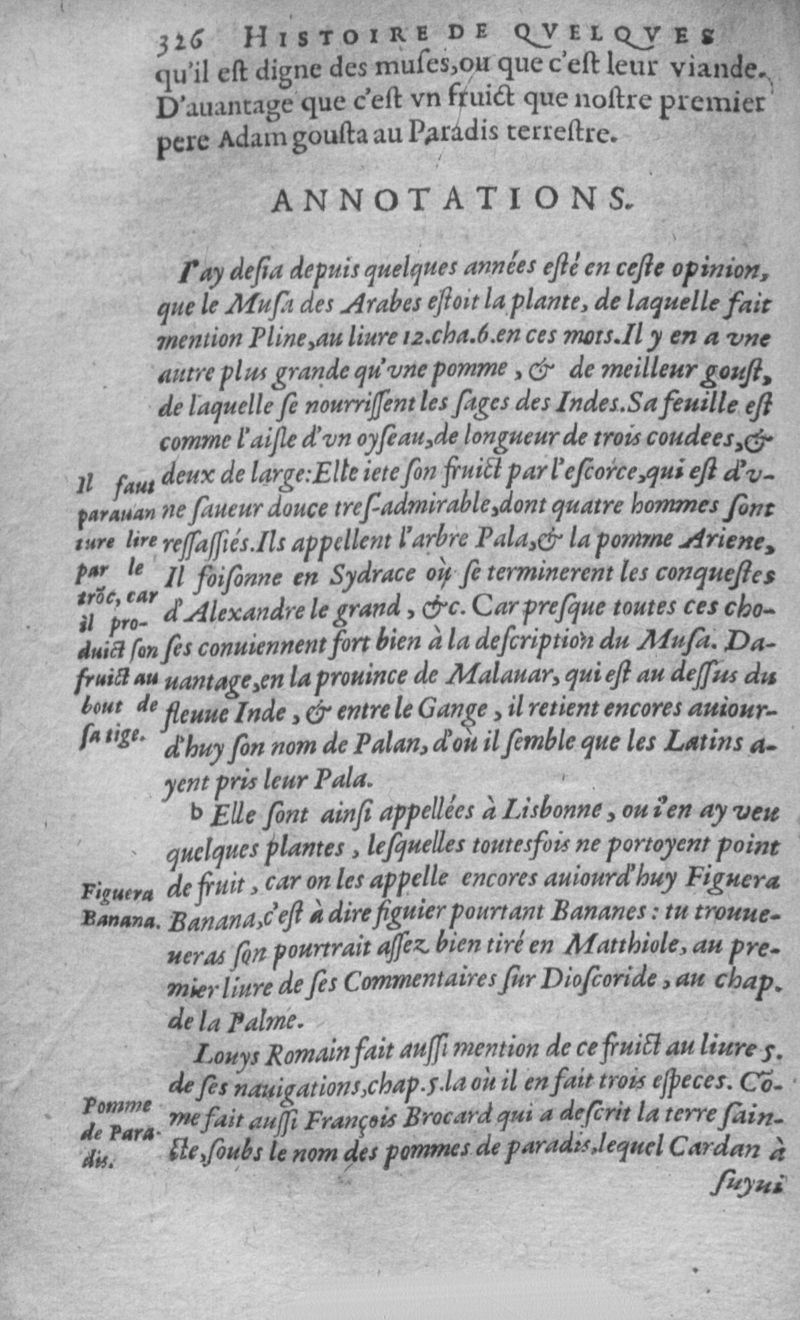 326 HISTOIRE DE QVELQVES
qu'il eſt digne des muſes, ou que c'eſt leur viande.
D'auantage que c'eſt vn fruict que noſtre premier
pere Adam gouſta au Paradis terreſtre.
ANNOTATIONS.
I'ay deſia depuis quelques années eſté en ceſte opinion,
que le Muſa des Arabes eſtoit la plante, de laquelle fait
mention Pline, au liure 12. cha. 6. en ces mots. Il y en a vne
autre plus grande qu'vne pomme, & de meilleur gouſt,
de laquelle ſe nourriſſent les ſages des Indes. Sa feuille eſt
comme l'aiſle d'vn oyſeau, de longueur de trois coudees, &
deux de large: Elle iete ſon fruict par l'eſcorce, qui eſt d'v-
ne ſaueur douce treſ-admirable, dont quatre hommes ſont
reſſaſſiés. Ils appellent l'arbre Pala, & la pomme Ariene,
Il foiſonne en Sydrace où ſe terminerent les conqueſtes
d'Alexandre le grand, &c. Car preſque toutes ces cho-
ſes conuiennent fort bien à la deſcription du Muſa. Da-
uantage, en la prouince de Malauar, qui eſt au deſſus du
fleuue Inde, & entre le Gange, il retient encores auiour-
d'huy ſon nom de Palan, d'où il ſemble que les Latins a-
yent pris leur Pala.
Il faut
parauan
ture lire
par le
trõc, car
il pro-
duict ſon
fruict au
bout de
ſa tige.
b Elle ſont ainſi appellées à Lisbonne, ou i'en ay veu
quelques plantes, leſquelles toutesfois ne portoyent point
de fruit, car on les appelle encores auiourd'huy Figuera
Banana, c'eſt à dire figuier pourtant Bananes: tu trouue-
ueras ſon pourtrait aſſez bien tiré en Matthiole, au pre-
mier liure de ſes Commentaires ſur Dioſcoride, au chap.
de la Palme.
Figuera
Banana.
Louys Romain fait auſſi mention de ce fruict au liure 5.
de ſes nauigations, chap. 5. la où il en fait trois eſpeces. Cõ-
me fait auſſi François Brocard qui a deſcrit la terre ſain-
cte, ſoubs le nom des pommes de paradis, lequel Cardan à
Pomme
de Para-
dis.
ſuyui